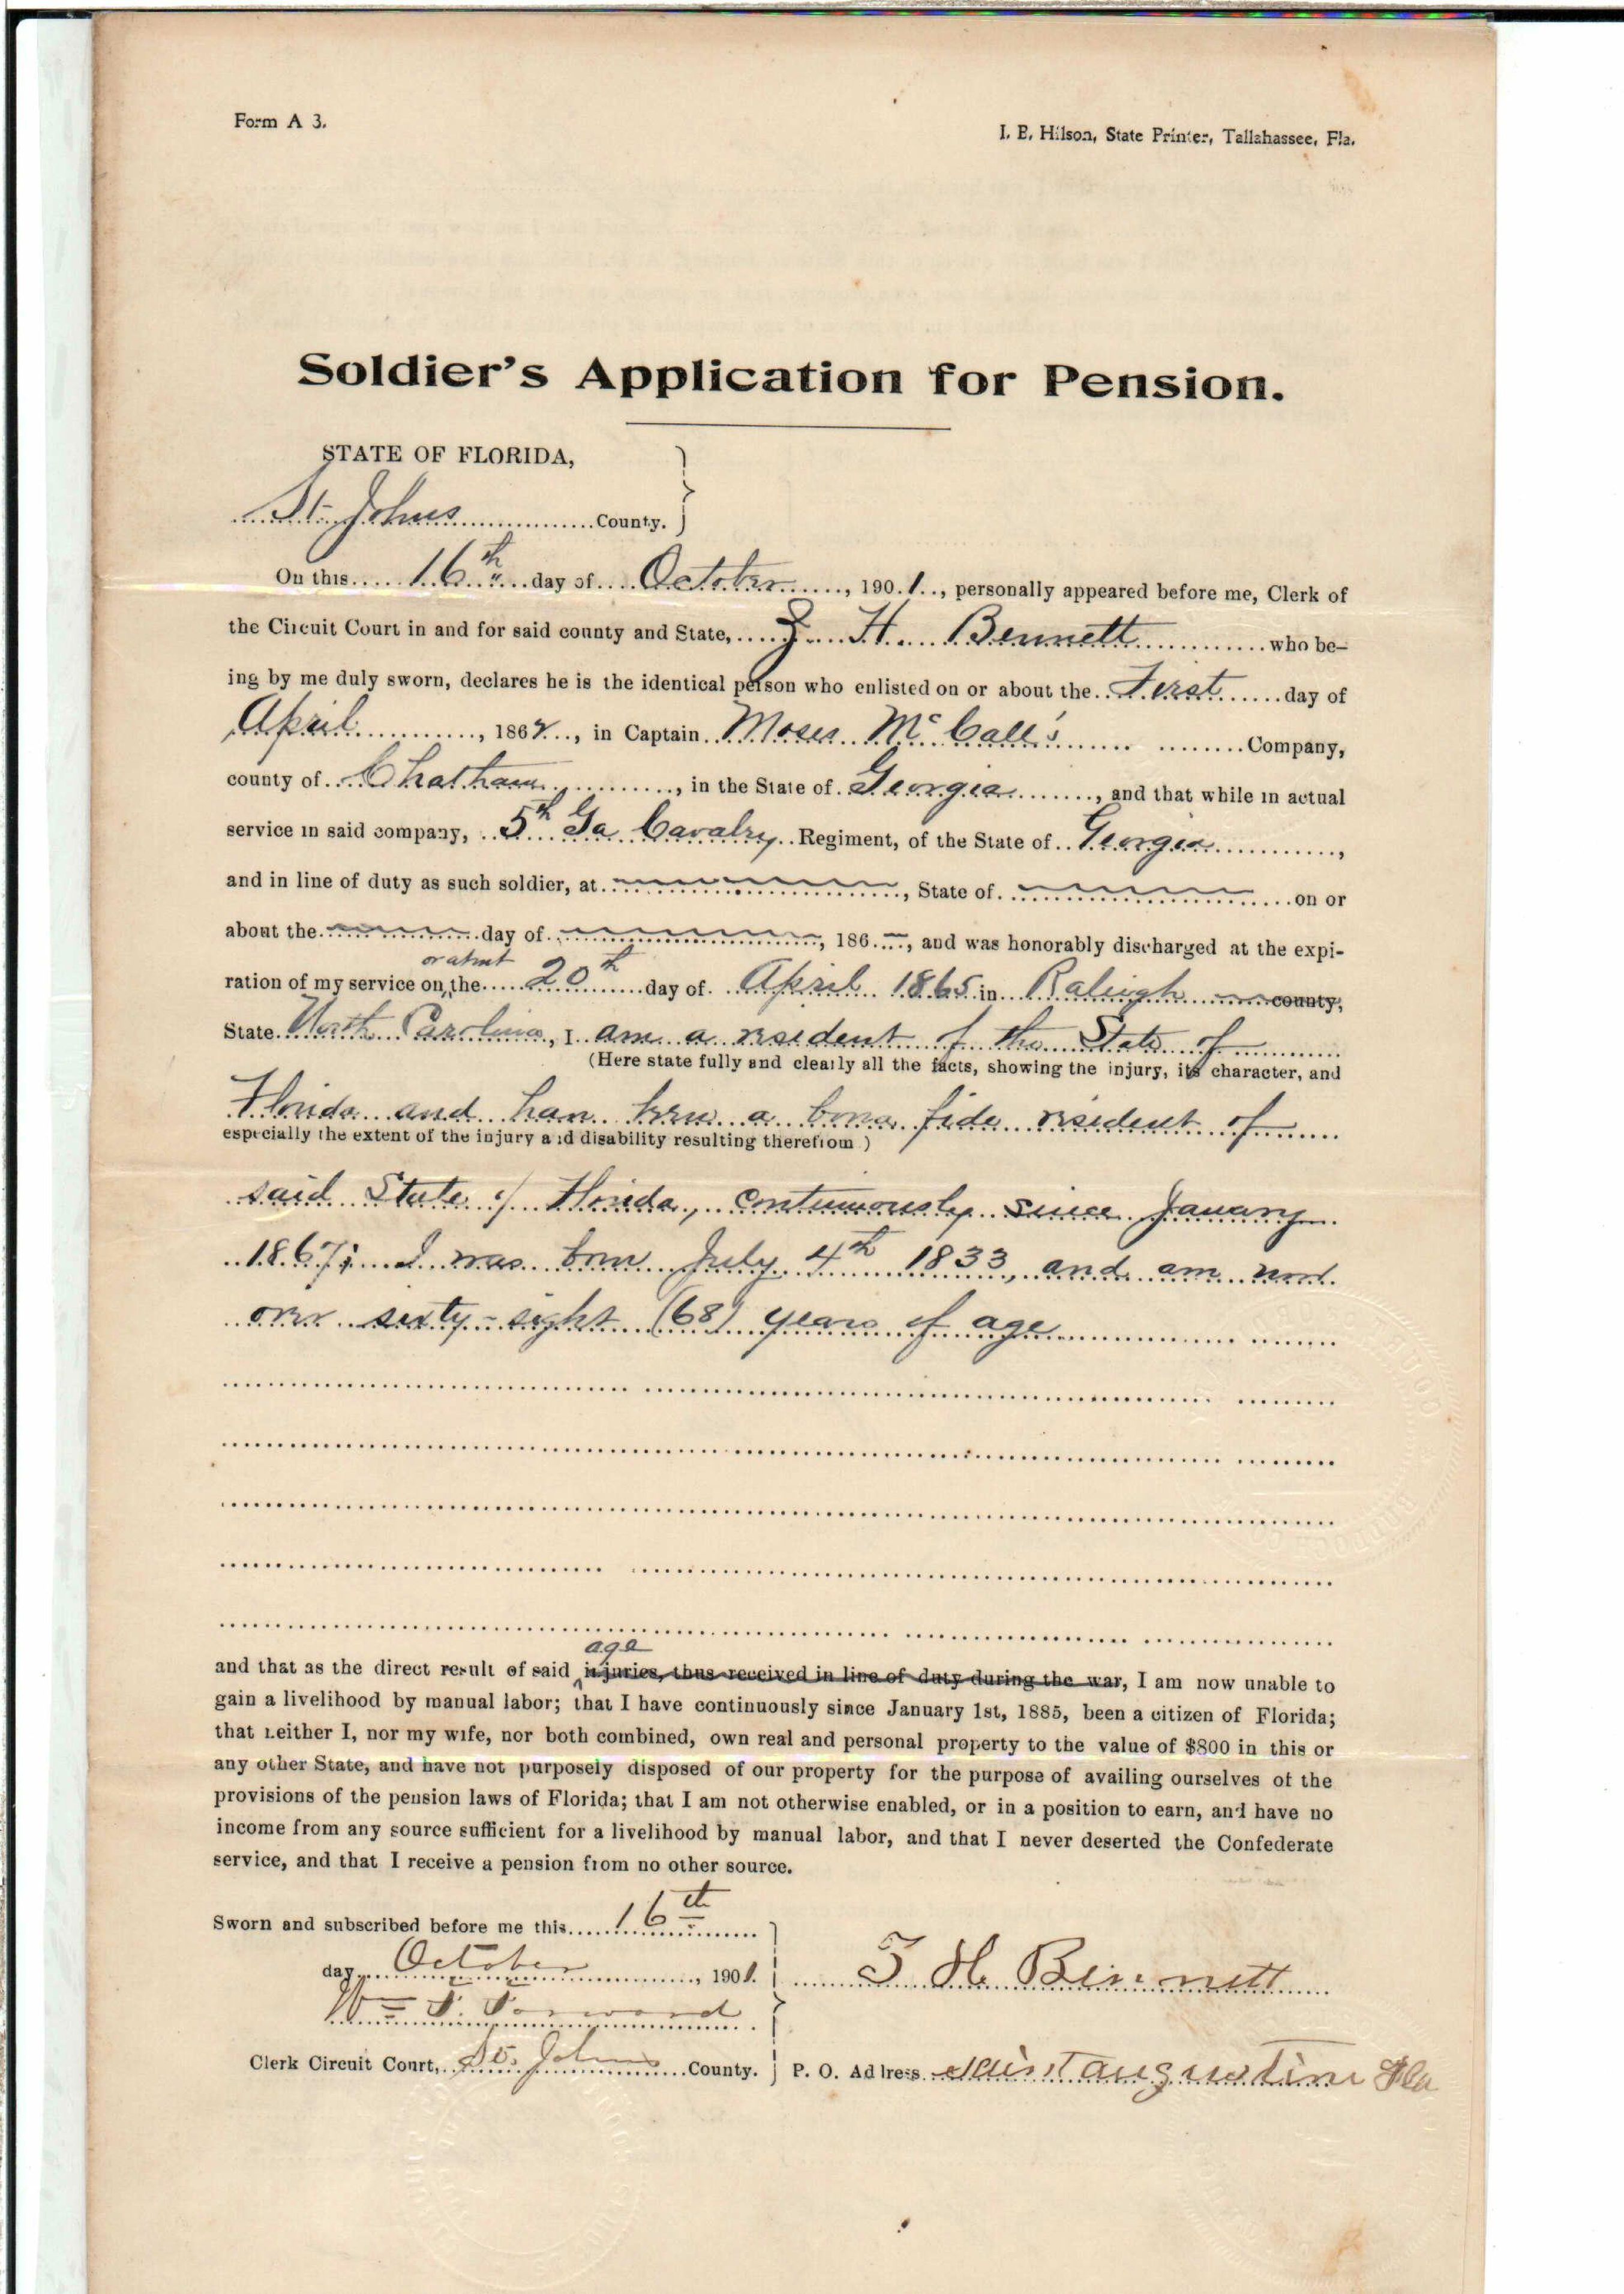 Form A 3.
I. B. Hilson, State Printer, Tallahassee, Fla.
Soldier's Application for Pension.
STATE OF FLORIDA,
St. Johns County.
On this 16th day of October, 1901, personally appeared before me, Clerk of
the Circuit Court in and for said county and State, H. Bennett who be-
ing by me duly sworn, declares he is the identical person who enlisted on or about the First day of
April, 1862, in Captain Moses McCall's Company,
county of Chatham, in the State of Georgia, and that while in actual
service in said company, 5th Ga Cavalry Regiment, of the State of Georgia,
and in line of duty as such soldier, at, State of on or
about the day of, 186, and was honorably discharged at the expi-
or about
ration of my service on the 20th day of April 1865 in Raleigh county,
State North Carolina, I am a resident of the State of
(Here state fully and clearly all the facts, showing the injury, its character, and
Florida and have been a bona fide resident of
especially the extent of the injury and disability resulting therefrom)
said State of Florida, continuously since January
1867; I was born July 4th 1833, and am now
over sixty-eight (68) years of age
age
and that as the direct result of said injuries, thus received in line of duty during the war, I am now unable to
gain a livelihood by manual labor; that I have continuously since January 1st, 1885, been a citizen of Florida;
that neither I, nor my wife, nor both combined, own real and personal property to the value of $800 in this or
any other State, and have not purposely disposed of our property for the purpose of availing ourselves of the
provisions of the pension laws of Florida; that I am not otherwise enabled, or in a position to earn, and have no
income from any source sufficient for a livelihood by manual labor, and that I never deserted the Confederate
service, and that I receive a pension from no other source.
Sworn and subscribed before me this 16th
day October, 1901.
H Bennett
Wm F. Forward
Clerk Circuit Court, St. Johns County.
P. O. Address Saint augustine Fla